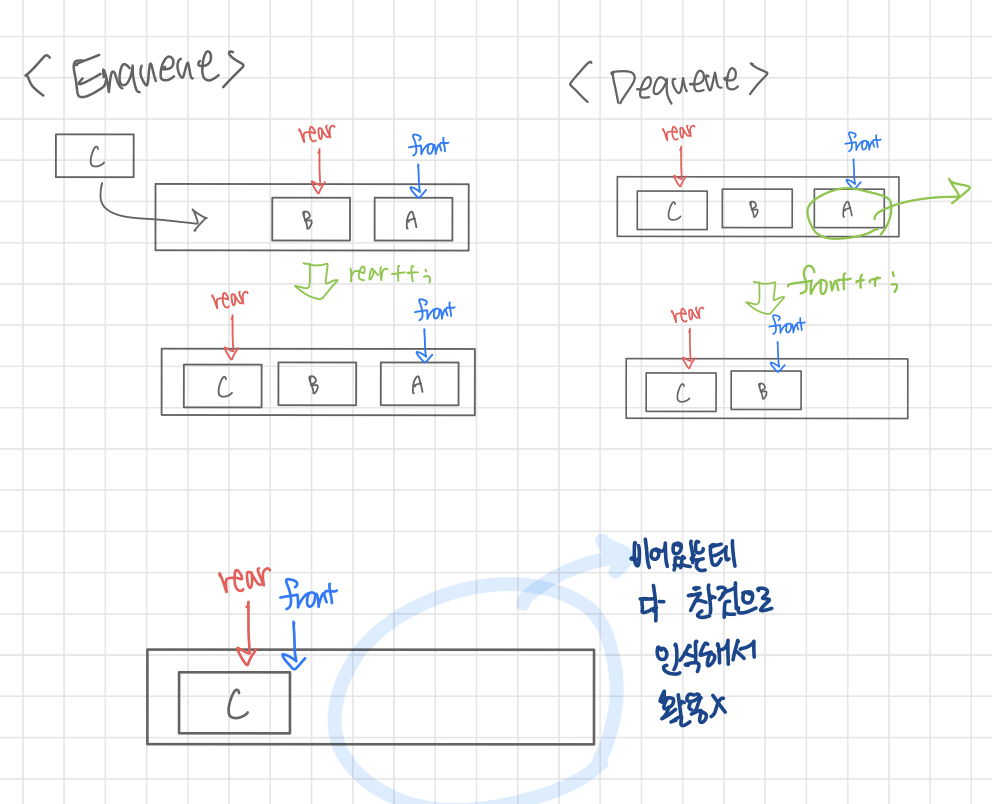 < Enqueue >
C
rear
front
B
A
rear++;
rear
front
C
B
A
< Dequeue >
rear
front
C
B
A
front++;
rear
front
C
B
rear
front
C
비어있는데
다 찬걸으로
인식해서
활용X